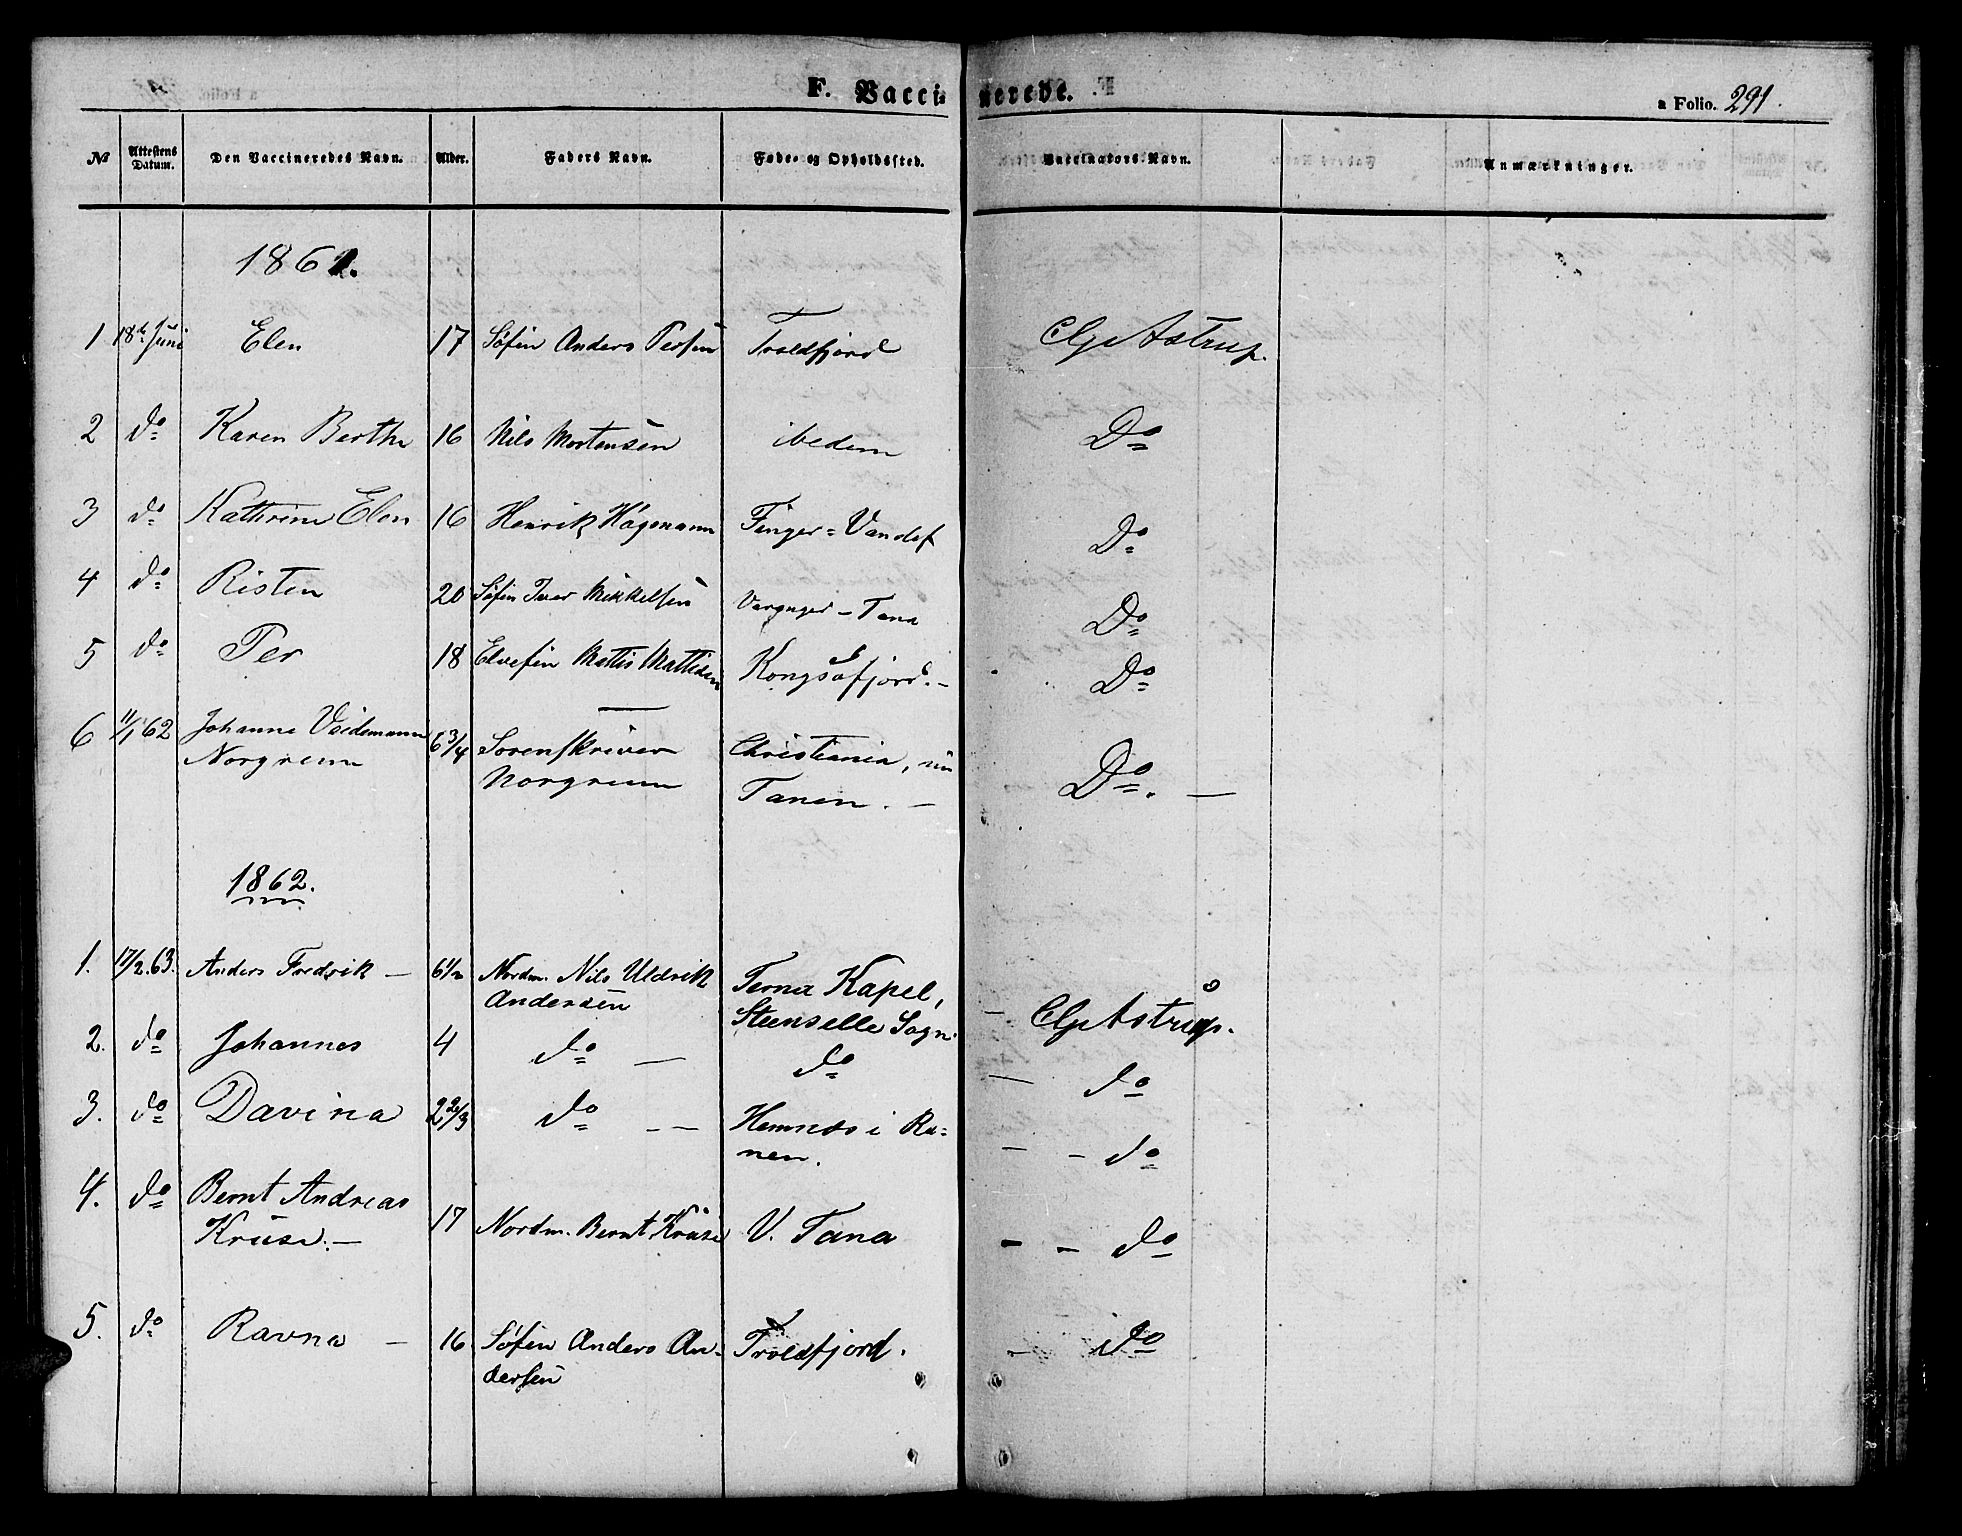 F. Vaccinerede.
a Folio. 291.
№ Attestens Datum. Den Vaccineredes Navn. Alder. Faders Navn. Føde- og Opholdssted. Vaccinators Navn. Anmærkninger.
1861.
1 18de Juni Elen 17 Søfin Anders Persen Troldfjord Astrup.
2 do Karen Berthe 16 Nils Mortensen ibedem Do
3 do Kathrine Elen 16 Henrik Hagemann Finger=Vandet Do
4 do Risten 20 Søfin Iver Mikkelsen Varanger - Tana Do
5 do Per 18 Elvefin Mattis Mattisen Kongsøfjord. - Do
6 11/1 62 Johanne Veidemann 6 3/4 Sorenskriver Christiania, nu Do. -
Norgrenn Norgrenn Tanen. -
1862.
1. 17/2.63. Anders Fredrik - 6 1/2 Nordm. Nils Uldrik Terna Kapel,
Andersen Steenselle Sogn. - Astrup.
2. do Johannes 4 do - do - do
3. do Davina 2 2/3 do - - Hemnæs i Ra- - - do
nen.
4. do Bernt Andreas
Kruse. - 17 Nordm. Bernt Kruse V. Tana - - do
5. do Ravna - 16 Søfin Anders An- Troldfjord. - do
dersen